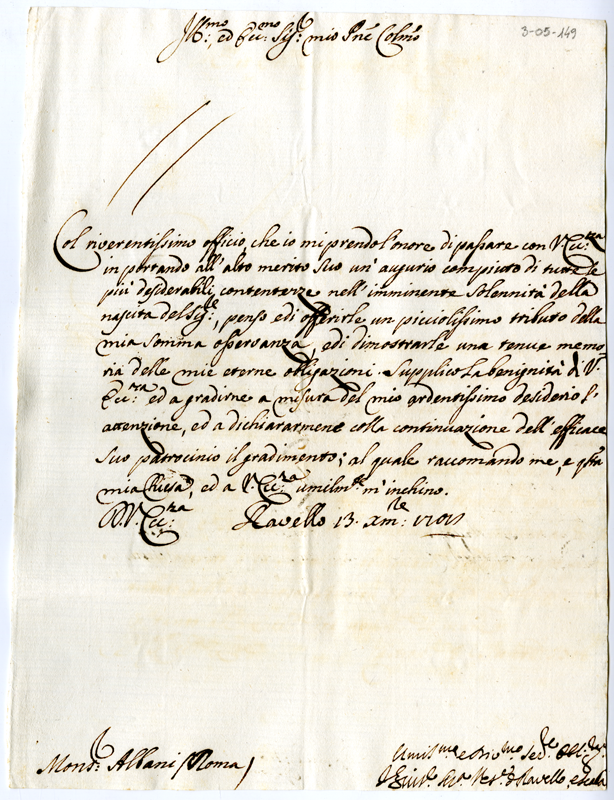 3-05-149
Ill.mo ed Ecc.mo Sig.r mio P.ne Col.mo
Col riverentissimo officio, che io mi prendo l'onore di passare con V. Ecc.za
in portando all'alto merito suo un' augurio compiuto di tutte le
più desiderabili contentezze nell'imminente solennità della
nascita del Sig.re, penso edi offerirle un picciolissimo tributo della
mia somma osservanza, edi dimostrarle una tenue memo
ria delle mie eterne obligazioni. Supplico la benignità di V.
Ecc.za ed a gradirne a misura del mio ardentissimo desiderio l'
attenzione, ed a dichiararmene colla continuazione dell'efficace
suo patrocinio il gradimento; al quale raccomando me, e q.sta
mia Chiesa, ed a V. Ecc.za umilm.te m'inchino.
D. V. Ecc.za Ravello 13. Xm.re
Mons.r Albani (Roma)
Umil.me e Div.mo Ser.re
Ves.o di Ravello, e Scala